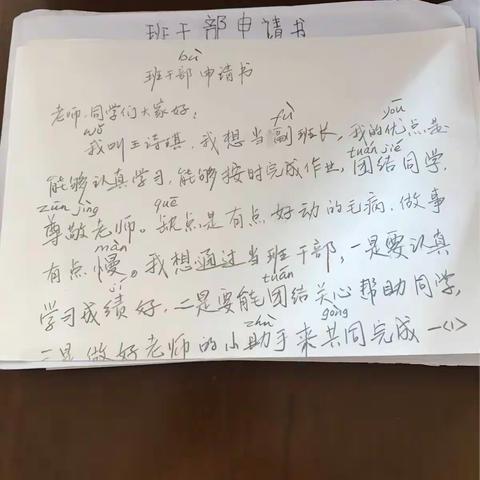 班干部申请书
bù
班干部申请书
老师、同学们大家好:
wǒ fù yōu
我叫王诗琪,我想当副班长,我的优点是
tuán jié
能够认真学习,能够按时完成作业,团结同学,
zūn jìng quē
尊敬老师。缺点是有点好动的毛病,做事
màn
有点慢。我想通过当班干部,一是要认真
jì tuán
学习成绩好,二是要能团结关心帮助同学,
zhù gòng
三是做好老师的小助手来共同完成一(1)